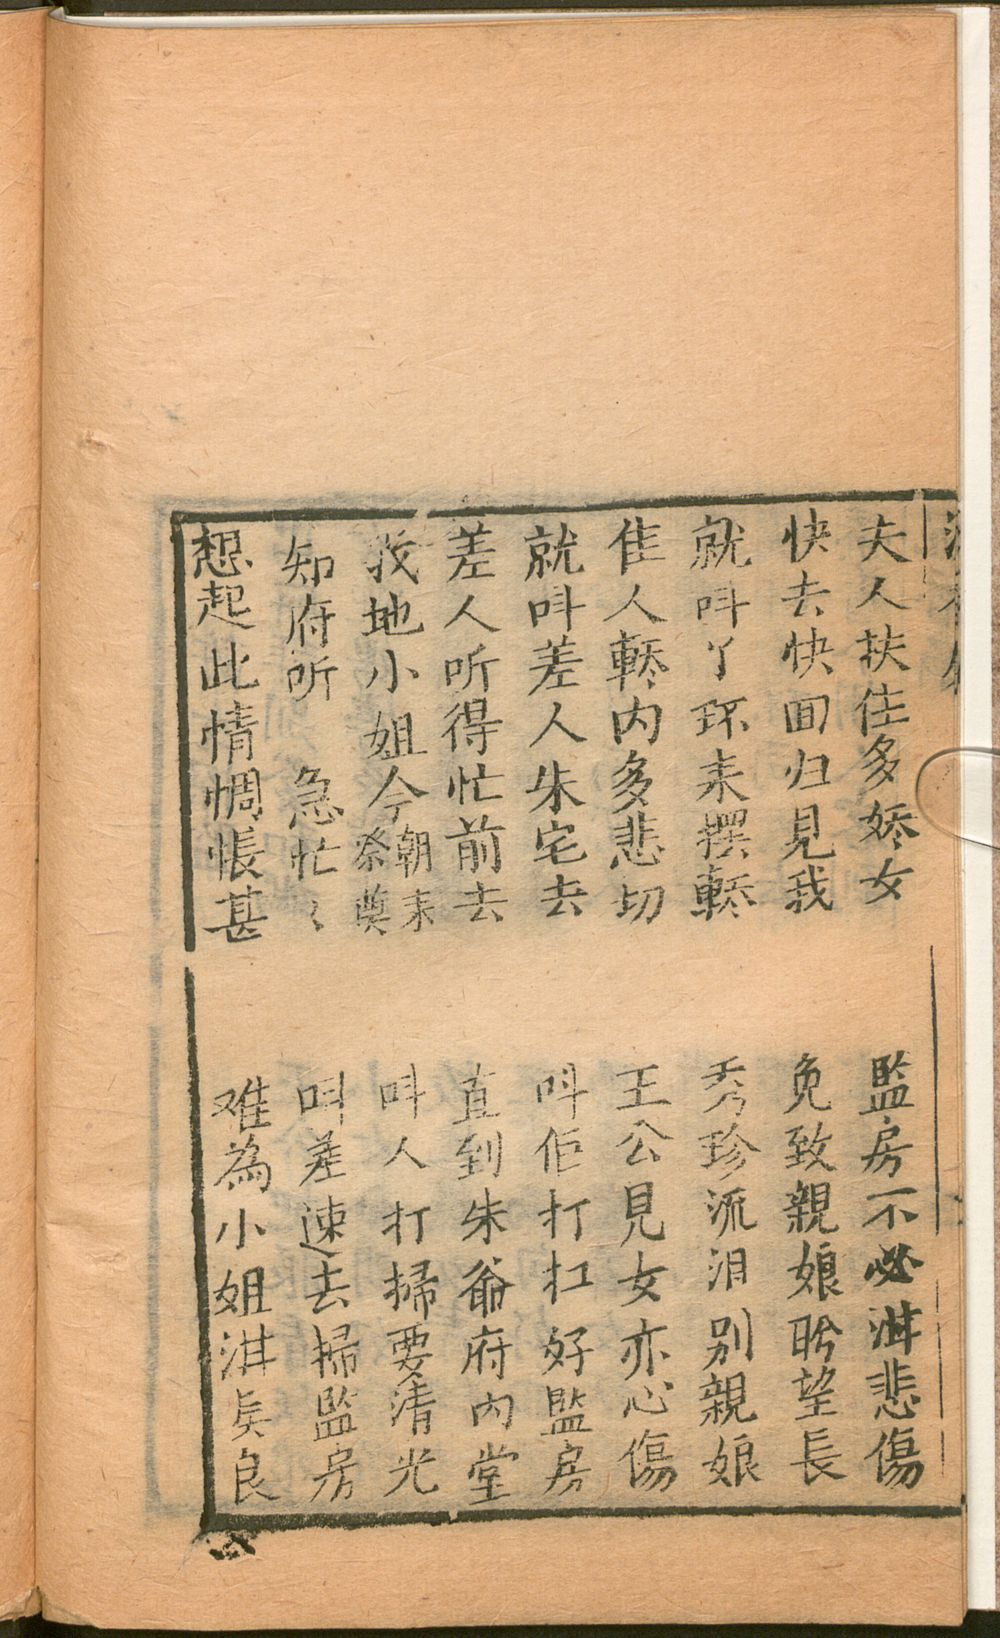 夫人扶住多娇女　監房不必淋悲傷
快去快回归見我　免致親娘盻望長
就呌丫环来摆轎　秀珍流泪别親娘
佳人轎内多悲切　王公見女亦心傷
就呌差人朱宅去　呌佢打扛好監房
差人听得忙前去　直到朱爺府内堂
我地小姐今朝来祭奠　呌人打掃要清光
知府听　急忙〻　呌差速去掃監房
想起此情惆悵甚　难為小姐淋矣良